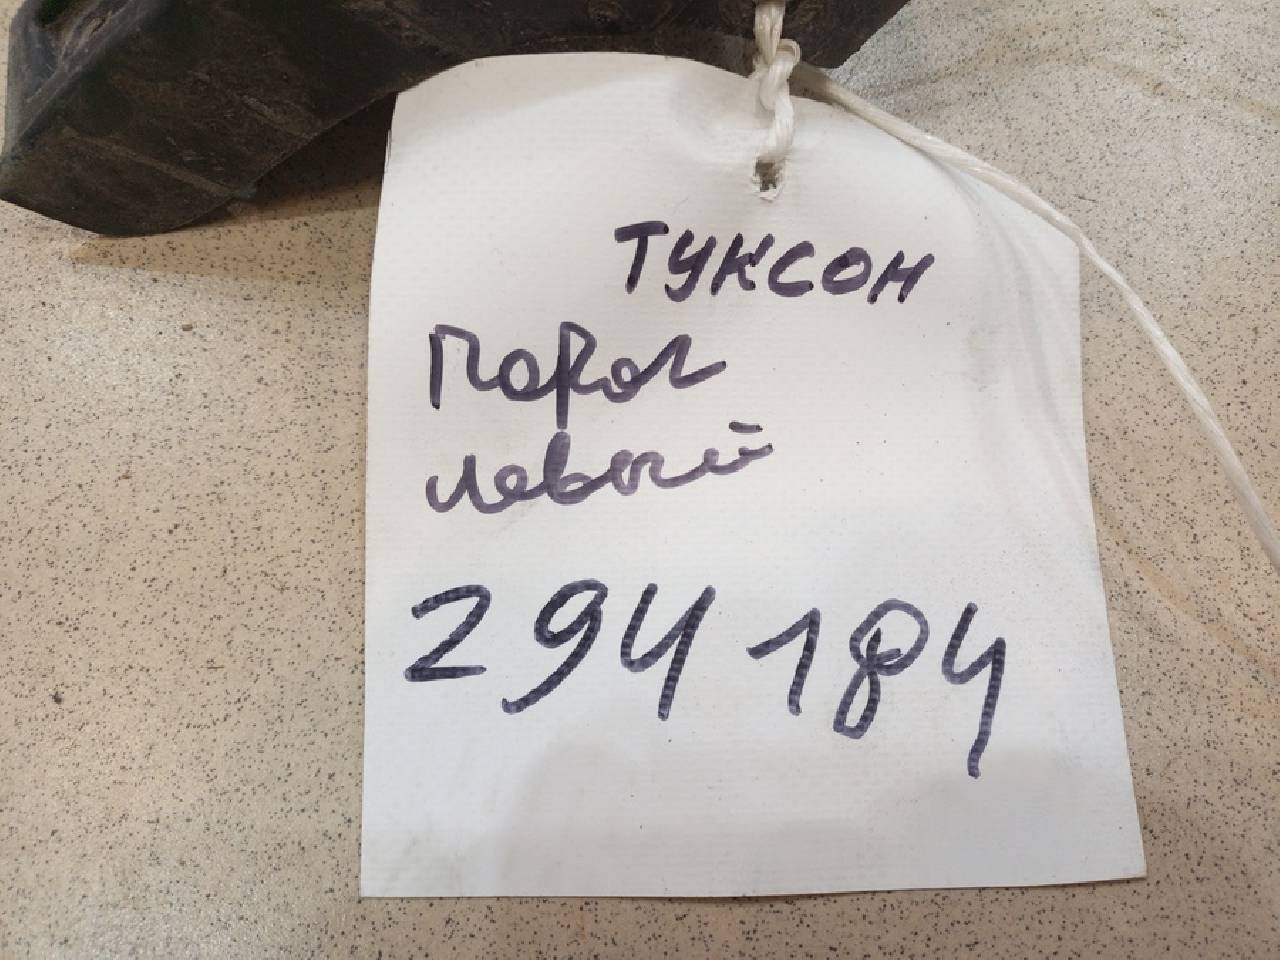 ТУКСОН
Порог
левый
294184